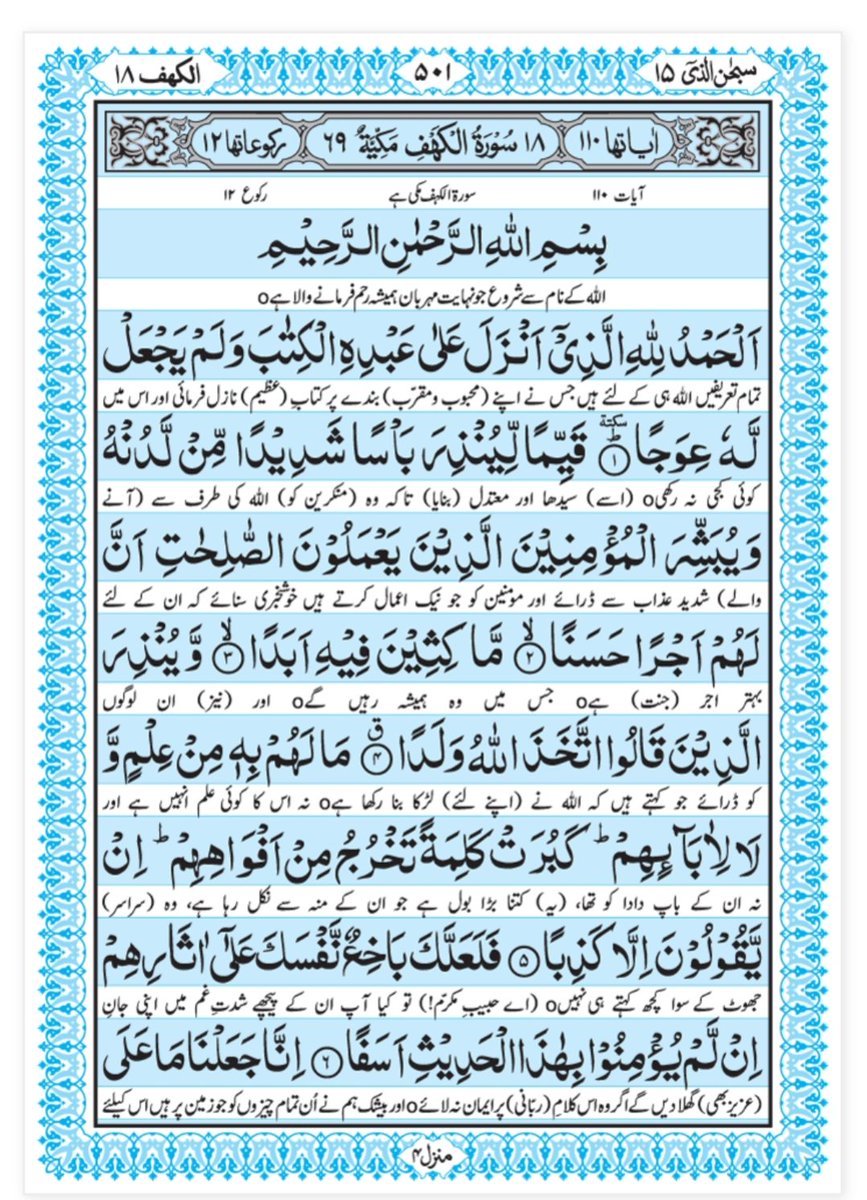 سبحٰن الذیٓ ۱۵
۵۰۱
الکهف ۱۸
اٰیاتها ۱۱۰
۱۸ سُوْرَةُ الْكَهْفِ مَكِّيَّةٌ ۶۹
رکوعاتها ۱۲
آیات ۱۱۰
سورۃ الکہف مکی ہے
رکوع ۱۲
بِسْمِ اللّٰهِ الرَّحْمٰنِ الرَّحِيْمِ
اللہ کے نام سے شروع جو نہایت مہربان ہمیشہ رحم فرمانے والا ہےo
اَلْحَمْدُ لِلّٰهِ الَّذِيْۤ اَنْزَلَ عَلٰى عَبْدِهِ الْكِتٰبَ وَ لَمْ يَجْعَلْ
تمام تعریفیں اللہ ہی کے لئے ہیں جس نے اپنے (محبوب و مقرّب) بندے پر کتابِ (عظیم) نازل فرمائی اور اس میں
لَّهٗ عِوَجًاؕ سكتة ۝۱ قَيِّمًا لِّيُنْذِرَ بَاْسًا شَدِيْدًا مِّنْ لَّدُنْهُ
کوئی کجی نہ رکھیo (اسے) سیدھا اور معتدل (بنایا) تاکہ وہ (منکرین کو) اللہ کی طرف سے (آنے
وَ يُبَشِّرَ الْمُؤْمِنِيْنَ الَّذِيْنَ يَعْمَلُوْنَ الصّٰلِحٰتِ اَنَّ
والے) شدید عذاب سے ڈرائے اور مومنین کو جو نیک اعمال کرتے ہیں خوشخبری سنائے کہ ان کے لئے
لَهُمْ اَجْرًا حَسَنًاۙ ۝۲ مَّاكِثِيْنَ فِيْهِ اَبَدًاۙ ۝۳ وَّ يُنْذِرَ
بہتر اجر (جنت) ہےo جس میں وہ ہمیشہ رہیں گےo اور (نیز) ان لوگوں
الَّذِيْنَ قَالُوا اتَّخَذَ اللّٰهُ وَلَدًاۗ ۝۴ مَا لَهُمْ بِهٖ مِنْ عِلْمٍ وَّ
کو ڈرائے جو کہتے ہیں کہ اللہ نے (اپنے لئے) لڑکا بنا رکھا ہےo نہ اس کا کوئی علم انہیں ہے اور
لَا لِاٰبَآىِٕهِمْ ؕ كَبُرَتْ كَلِمَةً تَخْرُجُ مِنْ اَفْوَاهِهِمْ ؕ اِنْ
نہ ان کے باپ دادا کو تھا، (یہ) کتنا بڑا بول ہے جو ان کے منہ سے نکل رہا ہے، وہ (سراسر)
يَّقُوْلُوْنَ اِلَّا كَذِبًا ۝۵ فَلَعَلَّكَ بَاخِعٌ نَّفْسَكَ عَلٰۤى اٰثَارِهِمْ
جھوٹ کے سوا کچھ کہتے ہی نہیںo (اے حبیبِ مکرّم!) تو کیا آپ ان کے پیچھے شدتِ غم میں اپنی جانِ
اِنْ لَّمْ يُؤْمِنُوْا بِهٰذَا الْحَدِيْثِ اَسَفًا ۝۶ اِنَّا جَعَلْنَا مَا عَلَى
(عزیز بھی) گھلا دیں گے اگر وہ اس کلامِ (ربّانی) پر ایمان نہ لائےo اور بیشک ہم نے اُن تمام چیزوں کو جو زمین پر ہیں اس کیلئے
منزل ۴